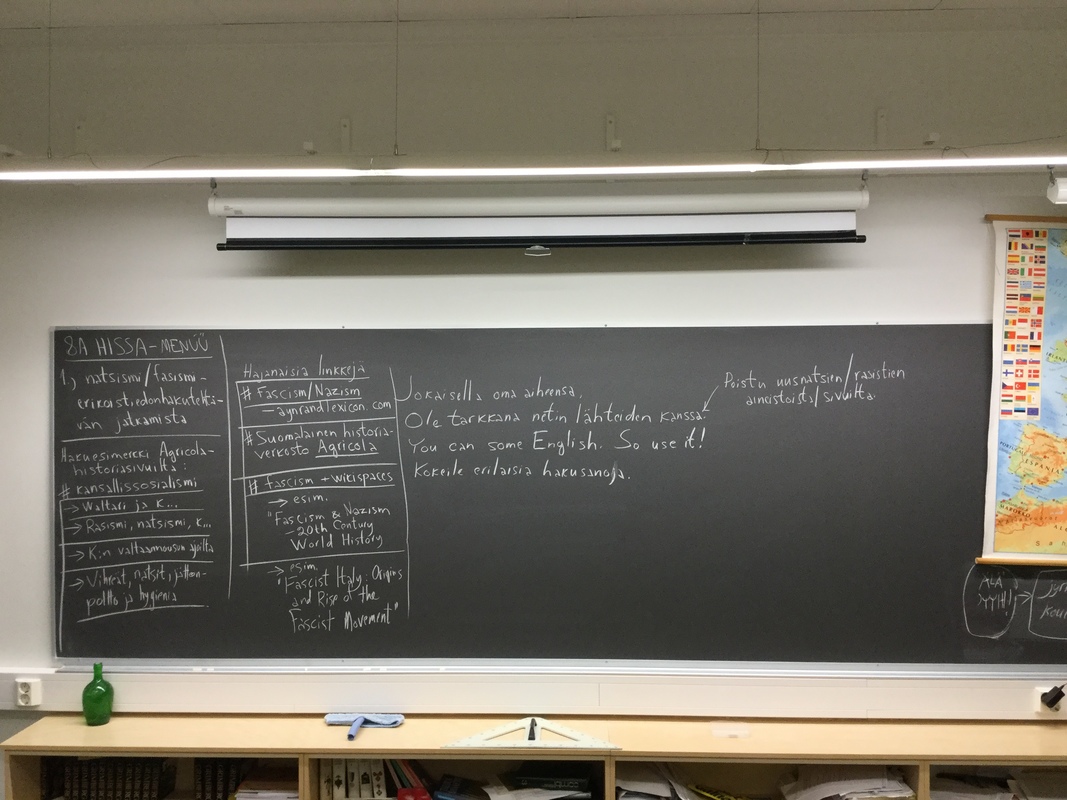 8A HISSA-MENÜÜ
1, natsismi/fasismi-
erikoistiedonhakutehtä-
vän jatkamista
Hakuesimerkki Agricola-
historiasivuilta:
# kansallissosialismi
→ Waltari ja K...
→ Rasismi, natsismi, K...
→ K:n valtaannousun ajoilta
→ Vihreät, natsit, jätten-
poltto ja hygienia
Hajanaisia linkkejä
# Fascism/Nazism
- aynrandlexicon.com
# Suomalainen historia-
verkosto Agricola
# fascism + wikispaces
→ esim.
"Fascism & Nazism
- 20th Century
World History
→ esim.
"Fascist Italy: Origins
and Rise of the
Fascist Movement"
Jokaisella oma aiheensa.
Ole tarkkana netin lähteiden kanssa.
You can some English. So use it!
Kokeile erilaisia hakusanoja.
Poistu uusnatsien/rasistien
aineistoista/sivuilta.
ESPANJA
MAROKKO
ÄLÄ